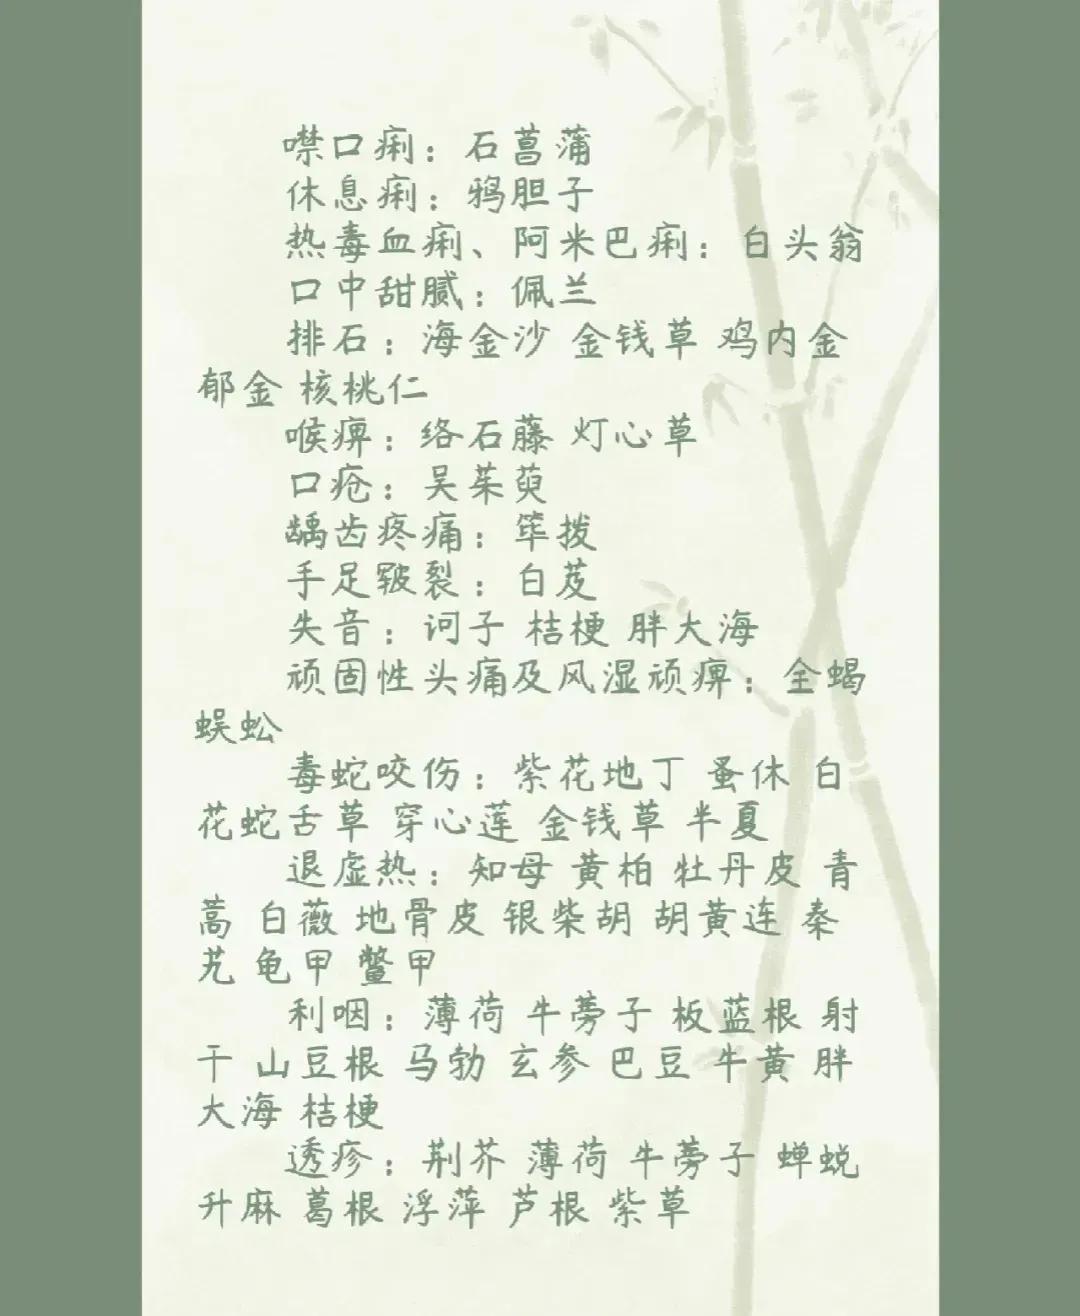 噤口痢：石菖蒲
休息痢：鸦胆子
热毒血痢、阿米巴痢：白头翁
口中甜腻：佩兰
排石：海金沙 金钱草 鸡内金
郁金 核桃仁
喉痹：络石藤 灯心草
口疮：吴茱萸
龋齿疼痛：荜拨
手足皲裂：白芨
失音：诃子 桔梗 胖大海
顽固性头痛及风湿顽痹：全蝎
蜈蚣
毒蛇咬伤：紫花地丁 蚤休 白
花蛇舌草 穿心莲 金钱草 半夏
退虚热：知母 黄柏 牡丹皮 青
蒿 白薇 地骨皮 银柴胡 胡黄连 秦
艽 龟甲 鳖甲
利咽：薄荷 牛蒡子 板蓝根 射
干 山豆根 马勃 玄参 巴豆 牛黄 胖
大海 桔梗
透疹：荆芥 薄荷 牛蒡子 蝉蜕
升麻 葛根 浮萍 芦根 紫草